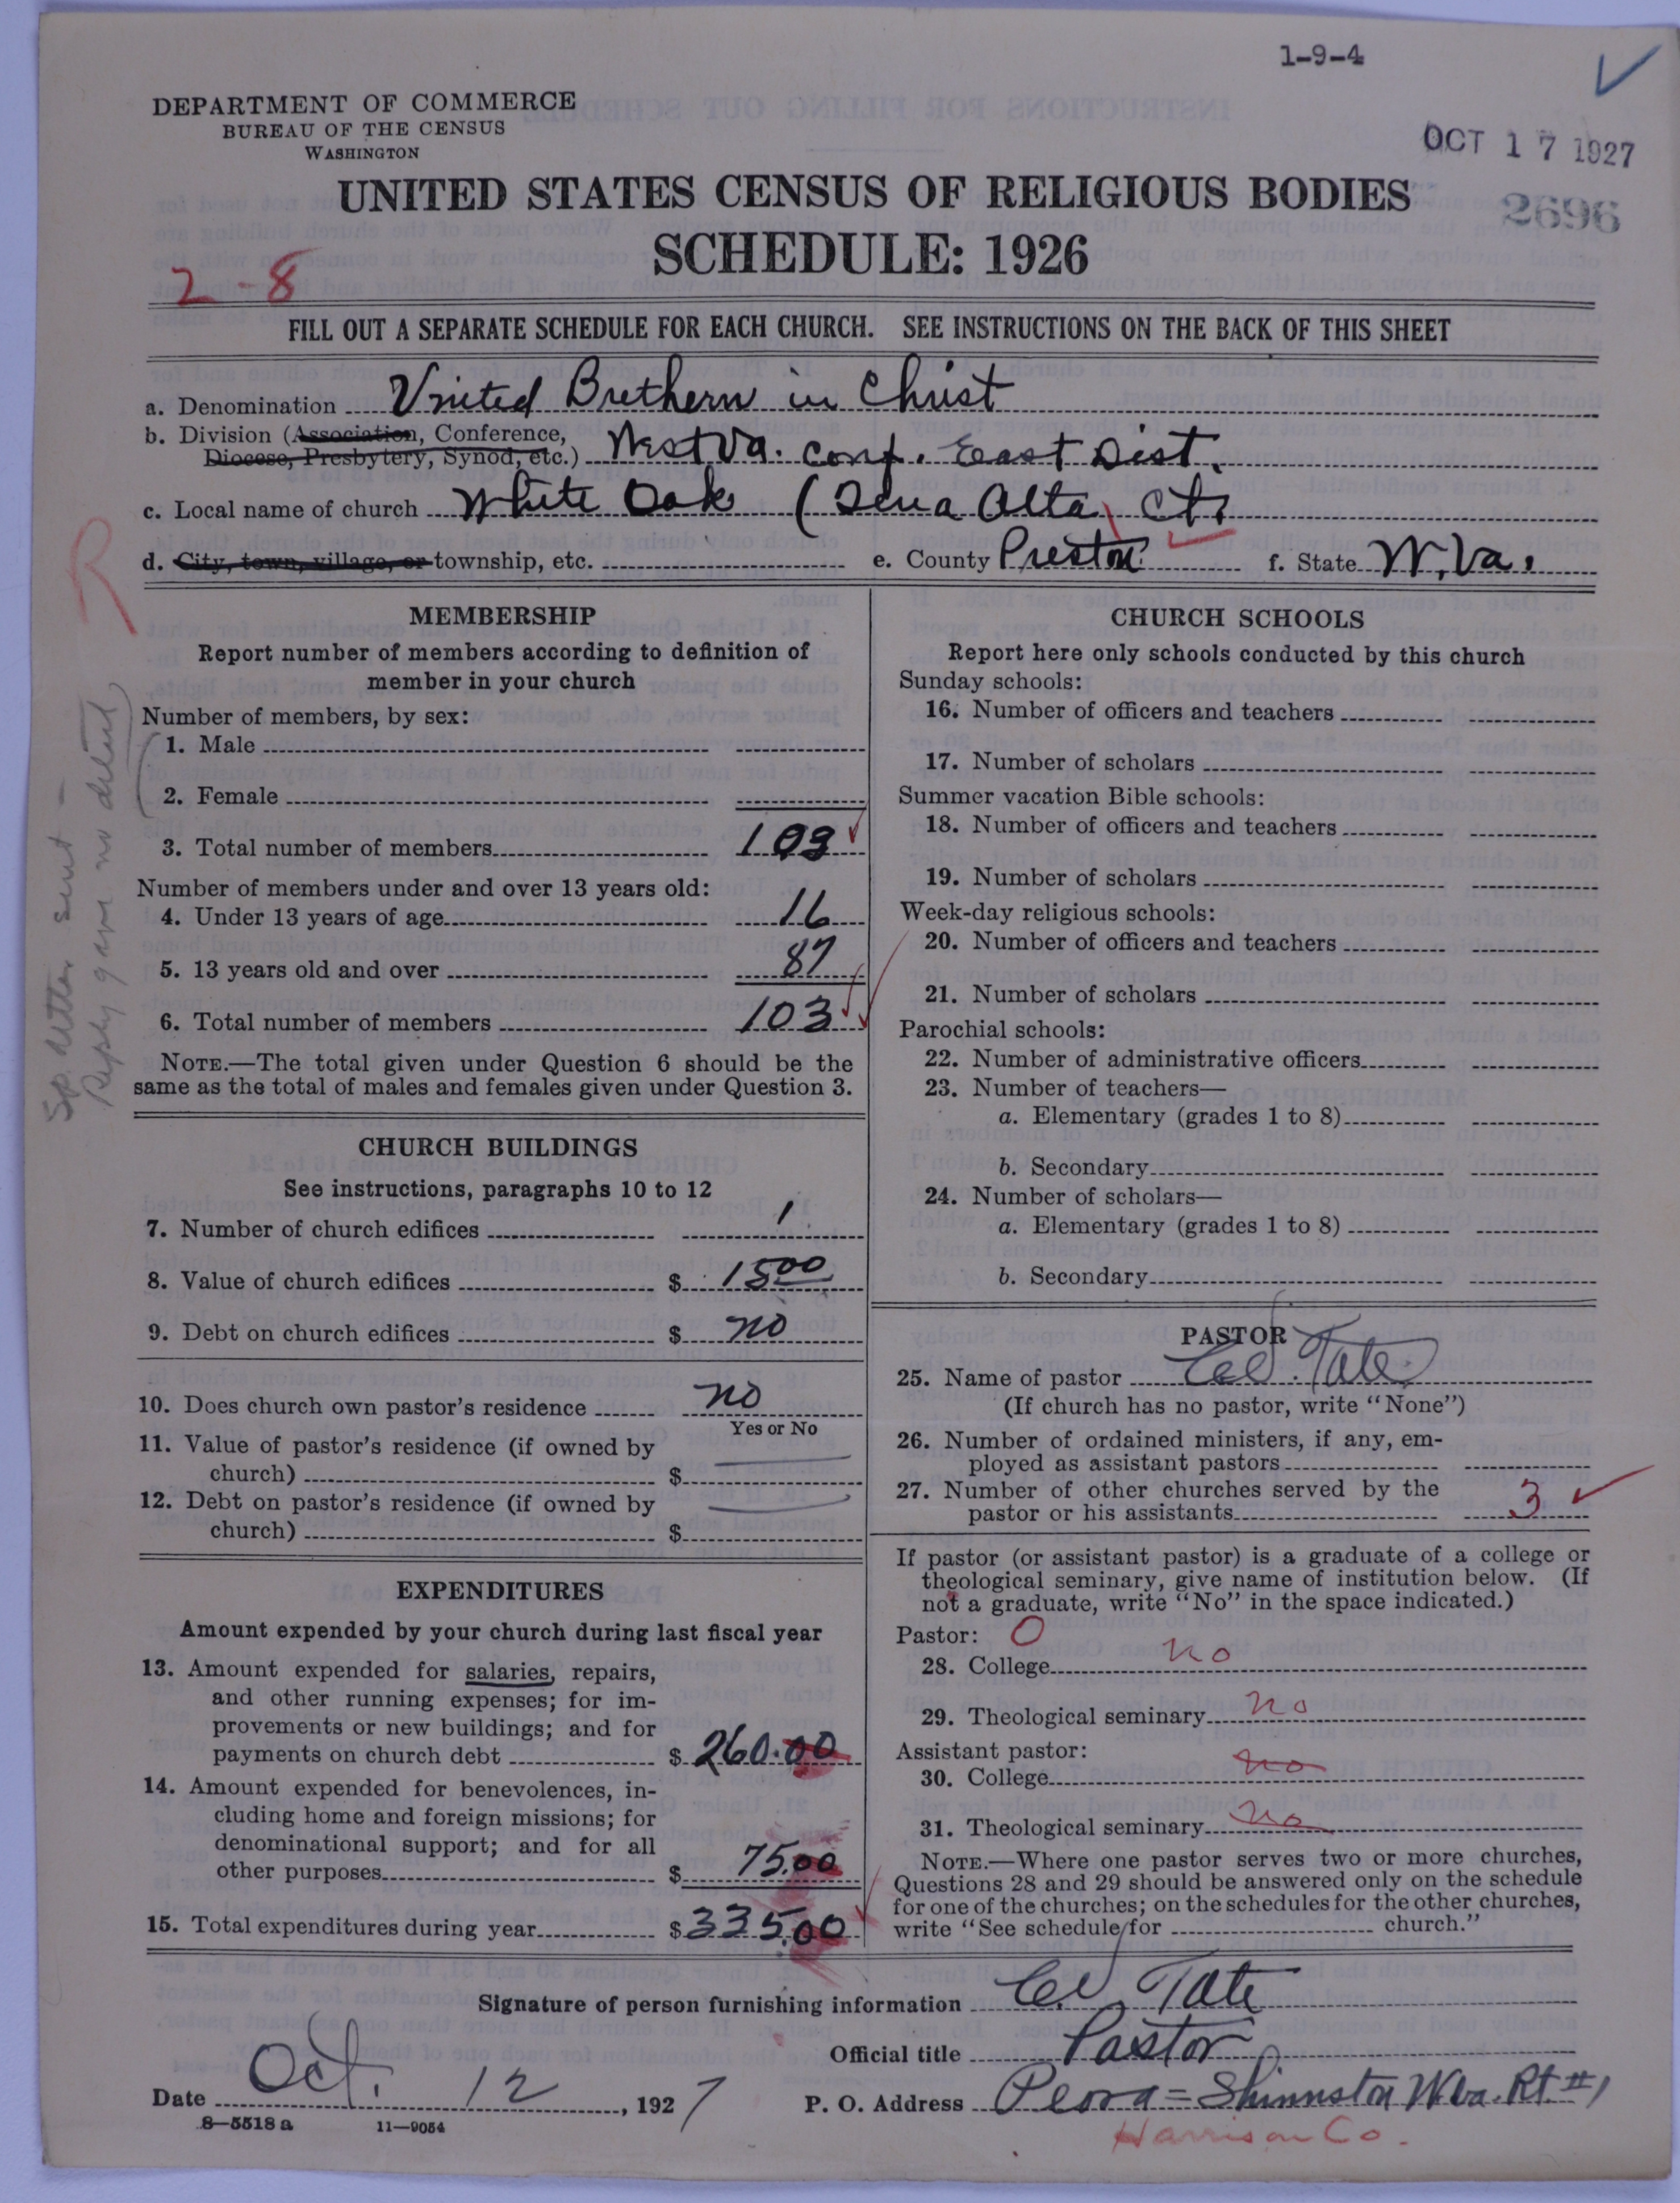 1-9-4
DEPARTMENT OF COMMERCE
BUREAU OF THE CENSUS
WASHINGTON
OCT 17 1927
2696
UNITED STATES CENSUS OF RELIGIOUS BODIES
SCHEDULE: 1926
2-8
FILL OUT A SEPARATE SCHEDULE FOR EACH CHURCH. SEE INSTRUCTIONS ON THE BACK OF THIS SHEET
a. Denomination United Brethern in Christ
b. Division (Association, Conference, Diocese, Presbytery, Synod, etc.) West Va. conf. East Dist.
c. Local name of church White Oak (Terra Alta) ct.
d. City, town, village, or township, etc. e. County Preston f. State W.Va.
R
Sp. letter sent -
Reply gave no detail
MEMBERSHIP
Report number of members according to definition of
member in your church
Number of members, by sex:
1. Male
2. Female
3. Total number of members 103
Number of members under and over 13 years old:
4. Under 13 years of age 16
5. 13 years old and over 87
6. Total number of members 103
NOTE.—The total given under Question 6 should be the
same as the total of males and females given under Question 3.
CHURCH BUILDINGS
See instructions, paragraphs 10 to 12
7. Number of church edifices 1
8. Value of church edifices $ 1500
9. Debt on church edifices $ no
10. Does church own pastor's residence no
Yes or No
11. Value of pastor's residence (if owned by
church) $
12. Debt on pastor's residence (if owned by
church) $
EXPENDITURES
Amount expended by your church during last fiscal year
13. Amount expended for salaries, repairs,
and other running expenses; for im-
provements or new buildings; and for
payments on church debt $ 260.00
14. Amount expended for benevolences, in-
cluding home and foreign missions; for
denominational support; and for all
other purposes $ 75.00
15. Total expenditures during year $ 335.00
CHURCH SCHOOLS
Report here only schools conducted by this church
Sunday schools:
16. Number of officers and teachers
17. Number of scholars
Summer vacation Bible schools:
18. Number of officers and teachers
19. Number of scholars
Week-day religious schools:
20. Number of officers and teachers
21. Number of scholars
Parochial schools:
22. Number of administrative officers
23. Number of teachers—
a. Elementary (grades 1 to 8)
b. Secondary
24. Number of scholars—
a. Elementary (grades 1 to 8)
b. Secondary
PASTOR
25. Name of pastor Tate
(If church has no pastor, write "None")
26. Number of ordained ministers, if any, em-
ployed as assistant pastors
27. Number of other churches served by the
pastor or his assistants 3
If pastor (or assistant pastor) is a graduate of a college or
theological seminary, give name of institution below. (If
not a graduate, write "No" in the space indicated.)
Pastor: O
28. College no
29. Theological seminary no
Assistant pastor:
30. College no
31. Theological seminary no
NOTE.—Where one pastor serves two or more churches,
Questions 28 and 29 should be answered only on the schedule
for one of the churches; on the schedules for the other churches,
write "See schedule for church."
Signature of person furnishing information Tate
Official title Pastor
Date Oct. 12, 1927 P. O. Address Peora = Shinnston W.Va. Rt. #1
Harrison Co.
8—5518 a 11—9054